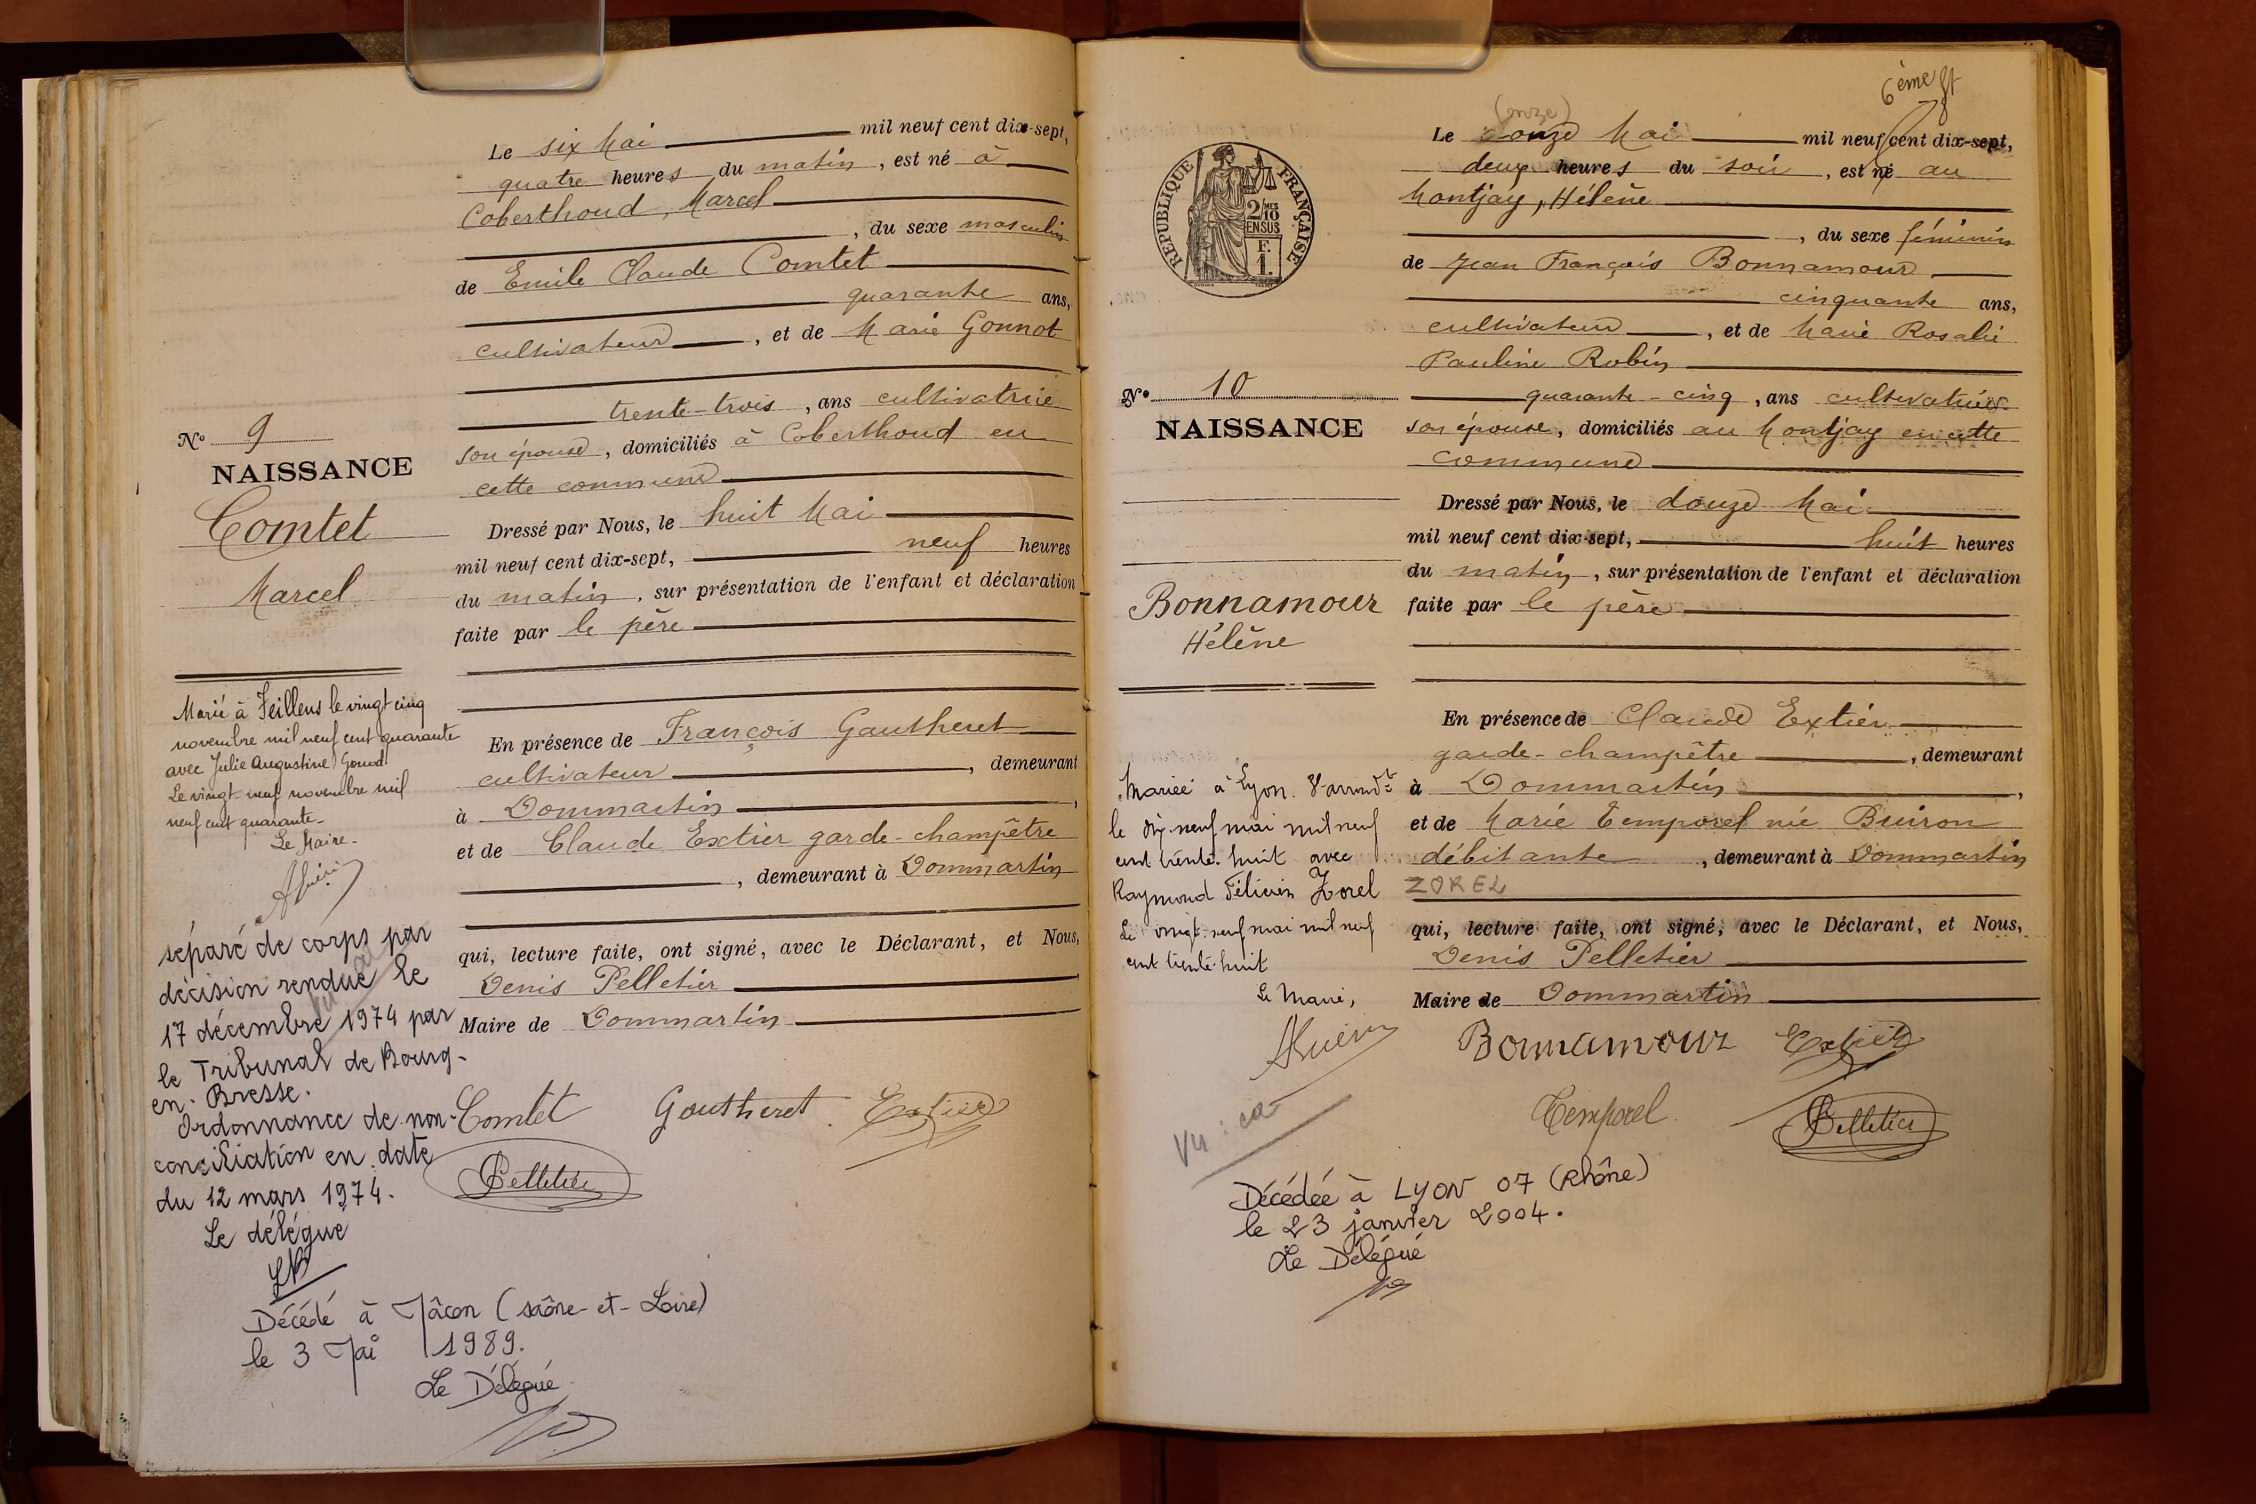 Le six Mai mil neuf cent dix-sept,
quatre heures du matin, est né à
Coberthoud, Marcel
, du sexe masculin
de Emile Claude Comtet
quarante ans,
cultivateur, et de Marie Gonnot
trente-trois, ans cultivatrice
son épouse, domiciliés à Coberthoud en
cette commune
Dressé par Nous, le huit Mai
mil neuf cent dix-sept, neuf heures
du matin, sur présentation de l'enfant et déclaration
faite par le père
En présence de François Gautheret
cultivateur, demeurant
à Dommartin,
et de Claude Extier garde-champêtre
, demeurant à Dommartin
qui, lecture faite, ont signé, avec le Déclarant, et Nous,
Denis Pelletier
Maire de Dommartin
Comtet Goutheret Extier
Pelletier
N° 9
NAISSANCE
Comtet
Marcel
Marié à Feillens le vingt cinq
novembre mil neuf cent quarante
avec Julie Augustine Gonod
Le vingt-neuf novembre mil
neuf cent quarante-
Le Maire.
séparé de corps par
décision rendue le
17 décembre 1974 par
le Tribunal de Bourg-
en-Bresse.
Ordonnance de non-
conciliation en date
du 12 mars 1974.
Le délégué
Décédé à Mâcon (Saône-et-Loire)
le 3 Mai 1989.
Le Délégué
6ème ft
(onze)
Le onze Mai mil neuf cent dix-sept,
deux heures du soir, est né au
Montjay, Hélène
, du sexe féminin
de Jean François Bonnamour
cinquante ans,
cultivateur, et de Marie Rosalie
Pauline Robin
quarante-cinq, ans cultivatrice
son épouse, domiciliés au Montjay en cette
commune
Dressé par Nous, le douze Mai
mil neuf cent dix-sept, huit heures
du matin, sur présentation de l'enfant et déclaration
faite par le père
En présence de Claude Extier
garde-champêtre, demeurant
à Dommartin,
et de Marie Temporel née Buiron
débitante, demeurant à Dommartin
ZOREL
qui, lecture faite, ont signé, avec le Déclarant, et Nous,
Denis Pelletier
Maire de Dommartin
Bonnamour Extier
Temporel Pelletier
RÉPUBLIQUE FRANÇAISE
2/10 MES
EN SUS
F.
1.
N° 10
NAISSANCE
Bonnamour
Hélène
Mariée à Lyon 8e arrondt
le dix-neuf mai mil neuf
cent trente-huit avec
Raymond Félicien Zorel
Le vingt-neuf mai mil neuf
cent trente-huit
Le Maire,
Vu :
Décédée à LYON 07 (Rhône)
le 23 janvier 2004.
Le Délégué